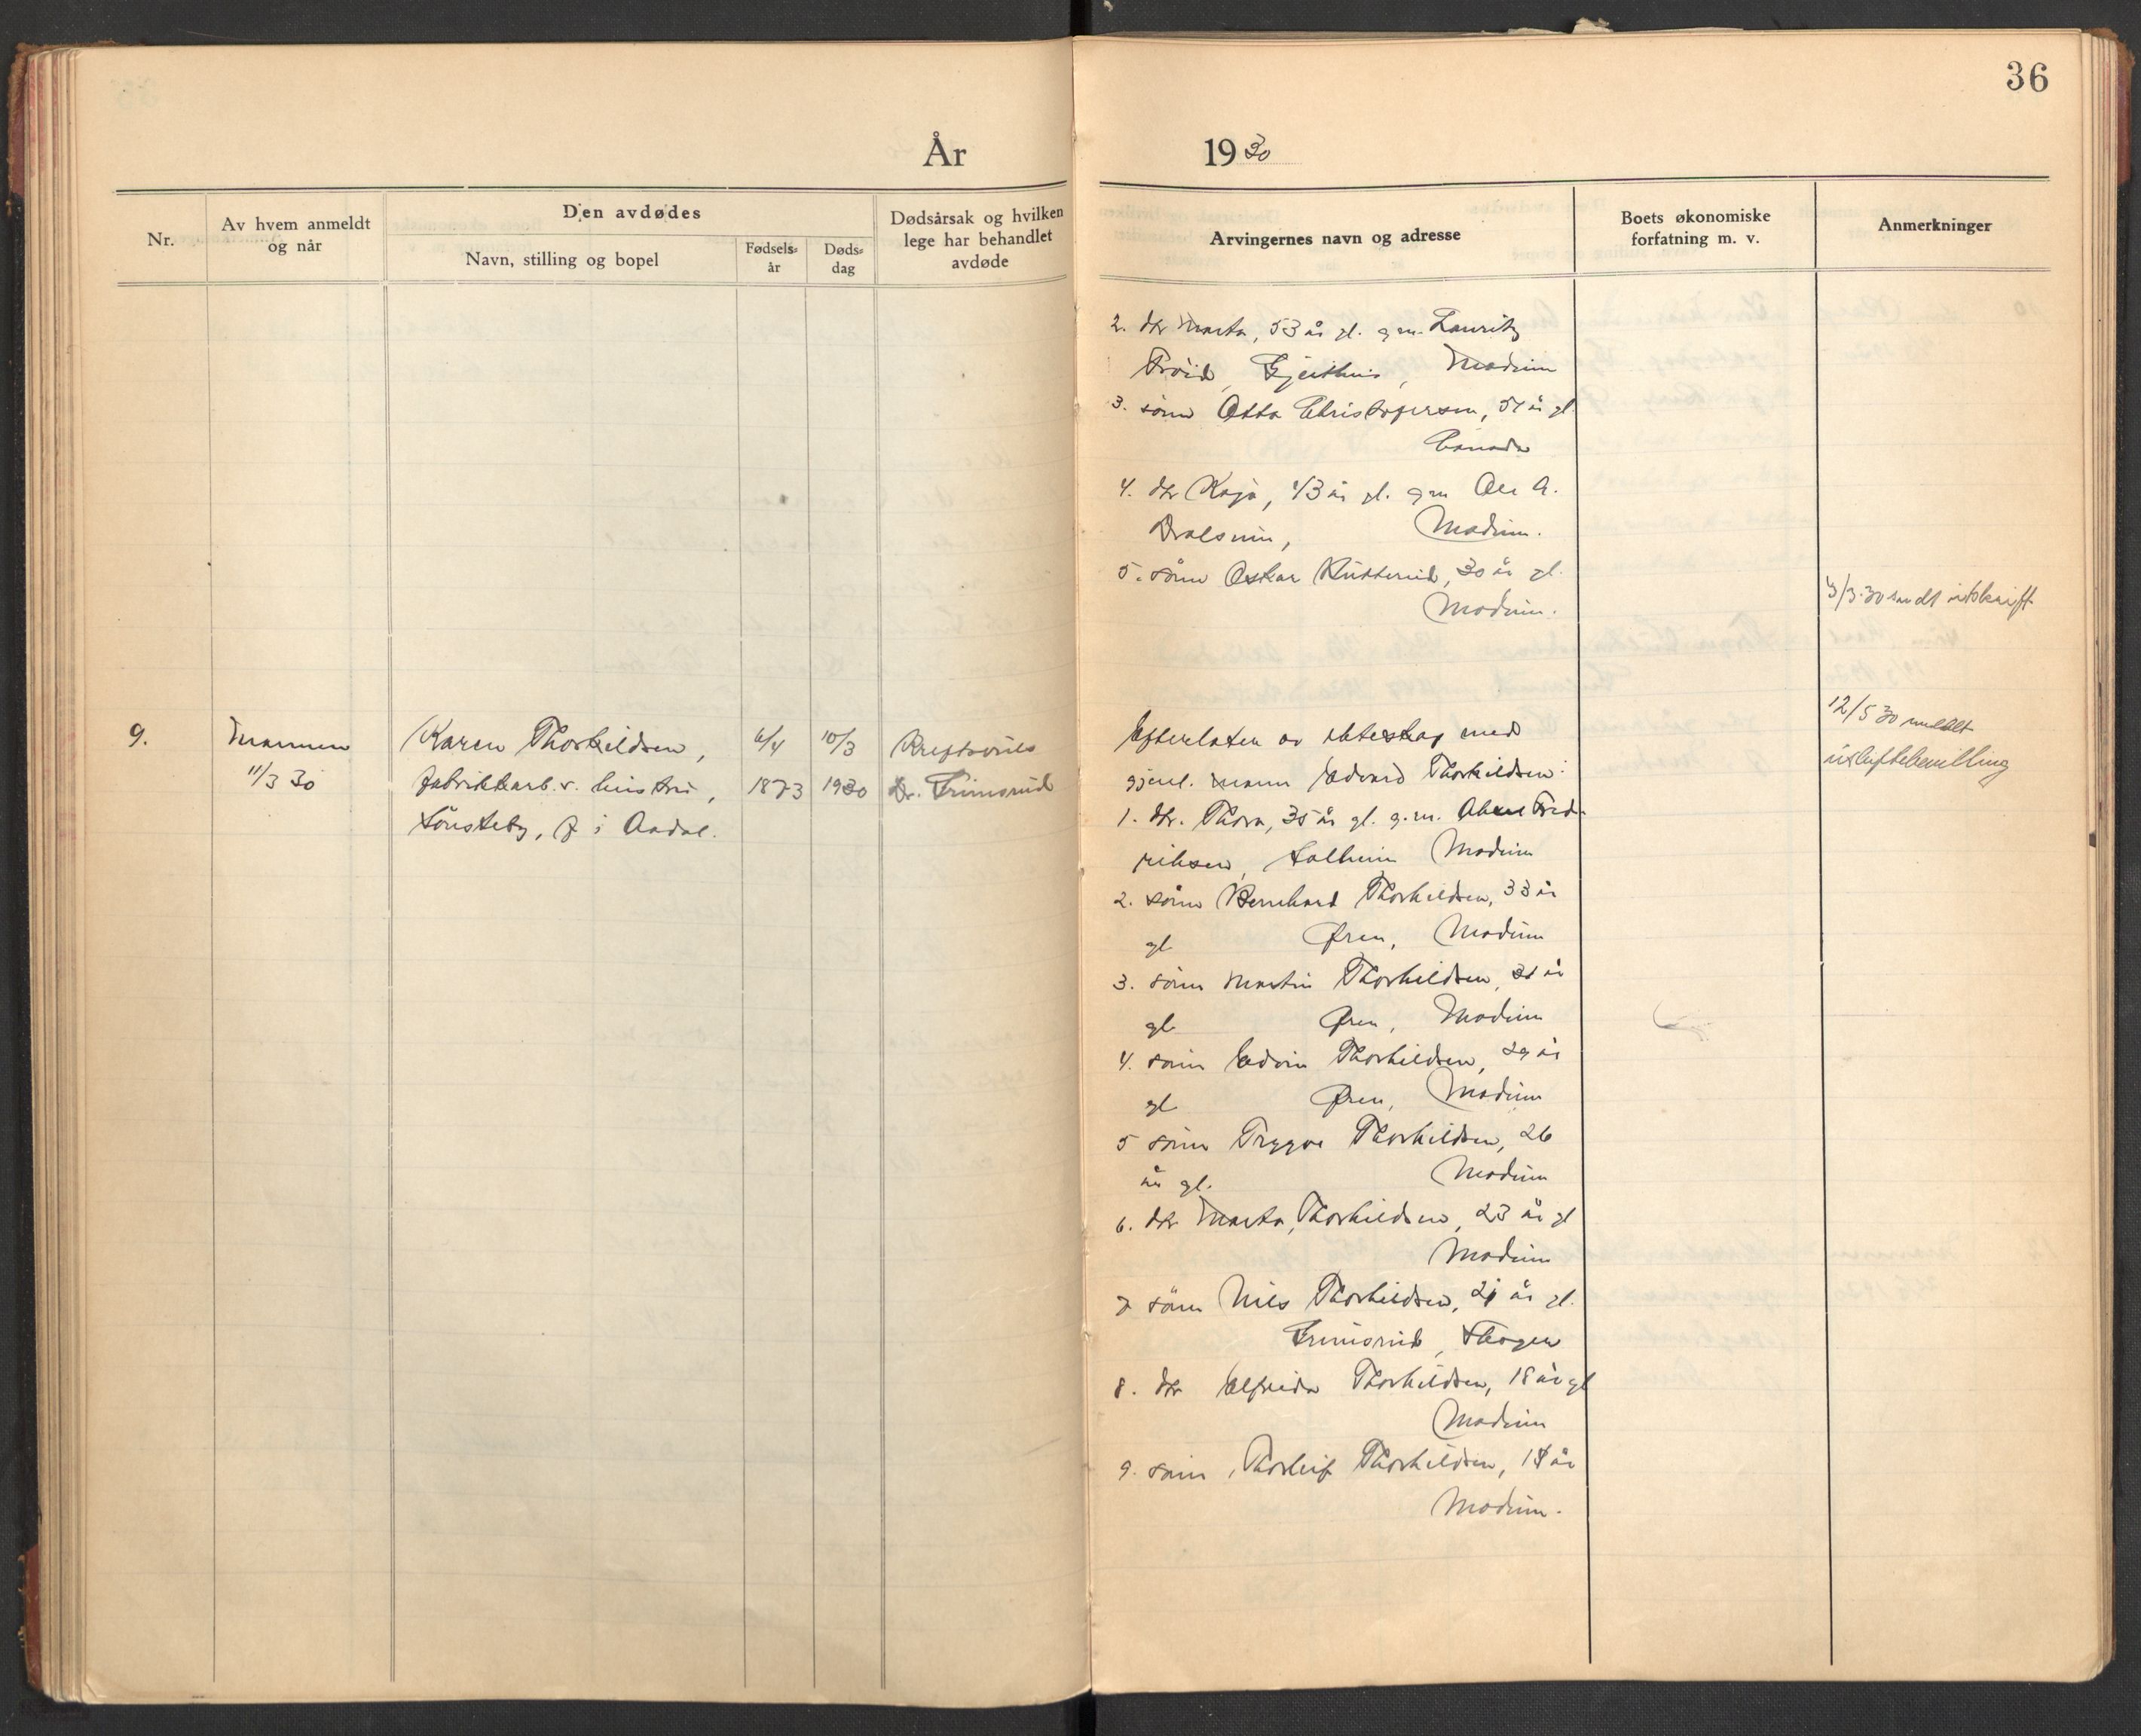 36
År 1930
Nr.
Av hvem anmeldt
og når
Den avdødes
Navn, stilling og bopel
Fødsels=
år
Døds=
dag
Dødsårsak og hvilken
lege har behandlet
avdøde
Arvingernes navn og adresse
Boets økonomiske
forfatning m. v.
Anmerkninger
2. dtr Marta, 53 år gl. g.m. Lauritz
Gjeithus, Modum
3. sønn Otto Christofersen, 51 år gl
Canada
4. dtr Kaja, 43 år gl. gm Ole A.
Modum.
5. sønn Oskar 30 år gl.
Modum.
3/3.30 sendt utskrift
9.
Mannen
11/3 30
Karen Thorkildsen,
fabrikkarb.s. hustru,
Sønsteby, f i Aadal.
6/4
1873
10/3
1930
Dr.
Efterlater av ekteskap med
gjenl. mann Edvard Thorkildsen:
1. dtr. Thora, 35 år gl. g.m. Fred-
riksen, Solheim Modum
2. sønn Bernhard Thorkildsen, 33 år
gl Øren, Modum
3. sønn Martin Thorkildsen, 31 år
gl Øren, Modum
4. sønn Edvin Thorkildsen, 29 år
gl Øren, Modum
5 sønn Trygve Thorkildsen, 26
år gl. Modum
6. dtr Marta Thorkildsen, 23 år gl
Modum
7 sønn Nils Thorkildsen, 21 år gl.
Skogen
8. dtr Elfrida Thorkildsen, 18 år gl
Modum
9. sønn Thorleif Thorkildsen, år
Modum.
12/5 30 meddelt
uskiftebevilling